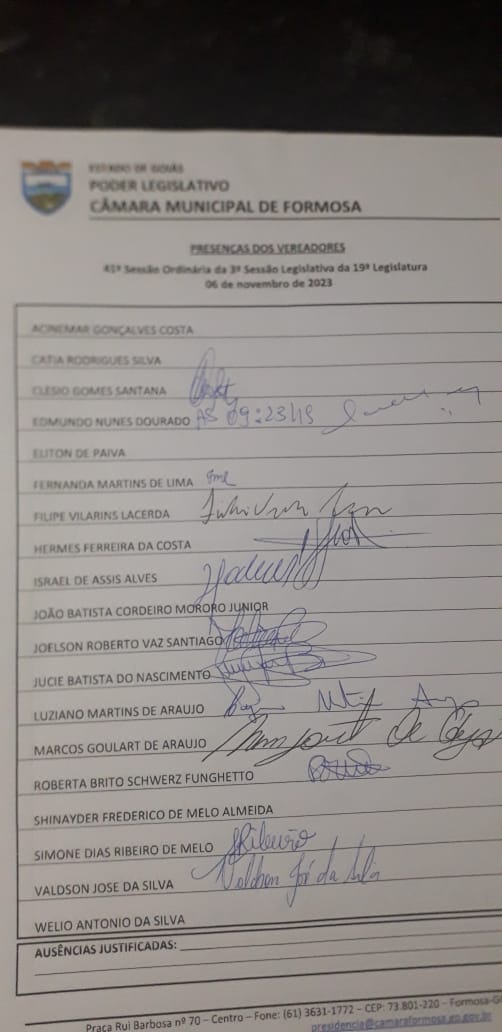 ESTADO DE GOIÁS
PODER LEGISLATIVO
CÂMARA MUNICIPAL DE FORMOSA
PRESENÇAS DOS VEREADORES
41ª Sessão Ordinária da 3ª Sessão Legislativa da 19ª Legislatura
06 de novembro de 2023
ACINEMAR GONÇALVES COSTA
CATIA RODRIGUES SILVA
CLÉSIO GOMES SANTANA
EDMUNDO NUNES DOURADO AS 09:23
ELITON DE PAIVA
FERNANDA MARTINS DE LIMA fml
FILIPE VILARINS LACERDA
HERMES FERREIRA DA COSTA
ISRAEL DE ASSIS ALVES
JOÃO BATISTA CORDEIRO MORORO JUNIOR
JOELSON ROBERTO VAZ SANTIAGO
JUCIE BATISTA DO NASCIMENTO
LUZIANO MARTINS DE ARAUJO
MARCOS GOULART DE ARAUJO
ROBERTA BRITO SCHWERZ FUNGHETTO
SHINAYDER FREDERICO DE MELO ALMEIDA
SIMONE DIAS RIBEIRO DE MELO SRibeiro
VALDSON JOSE DA SILVA Valdson José da Silva
WELIO ANTONIO DA SILVA
AUSÊNCIAS JUSTIFICADAS:
Praça Rui Barbosa nº 70 – Centro – Fone: (61) 3631-1772 – CEP: 73.801-220 – Formosa-G
presidencia@camaraformosa.go.gov.br